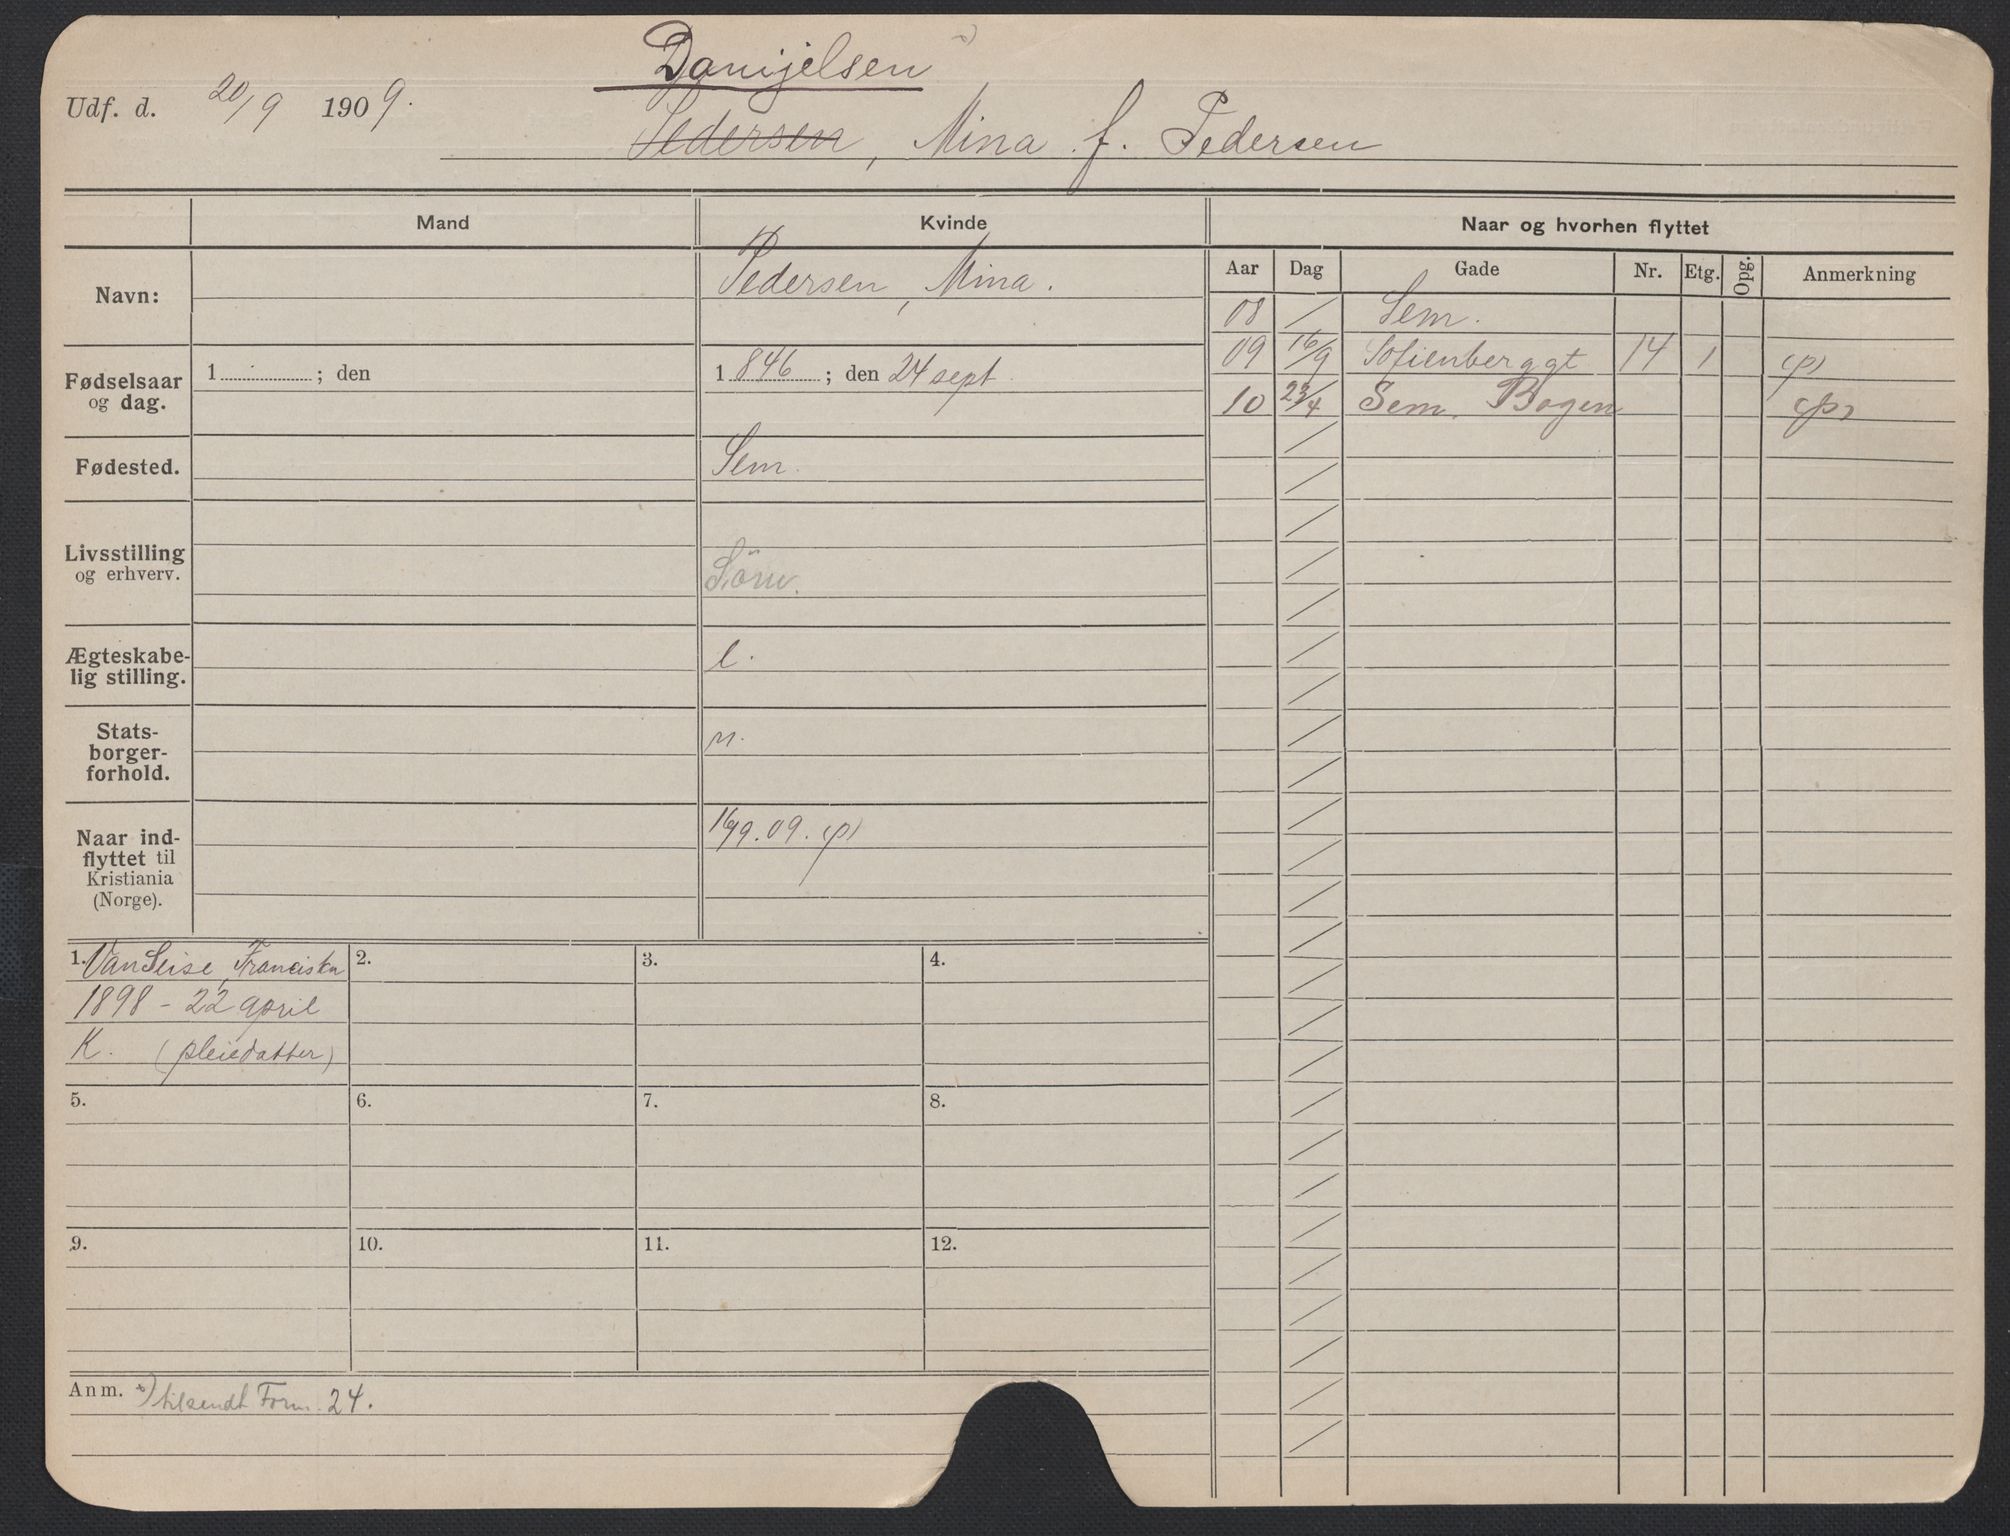 Danijelsen
Udf. d. 20/9 1909.
Pedersen, Mina f. Pedersen
Mand Kvinde Naar og hvorhen flyttet
Aar Dag Gade Nr. Etg. Opg. Anmerkning
Navn: Pedersen, Mina.
08 / Sem.
09 16/9 Sofienberggt 14 1 (p)
10 23/4 Sem. Bogen (p)
Fødselsaar
og dag.
1 ; den
1846 ; den 24 sept.
Fødested. Sem.
Livsstilling
og erhverv.
Ægteskabe-
lig stilling.
Stats-
borger-
forhold.
n.
Naar ind-
flyttet til
Kristiania
(Norge).
16/9.09. (p)
1. Van Seise, Franciska 2. 3. 4.
1898 - 22 april
K. (pleiedatter)
5. 6. 7. 8.
9. 10. 11. 12.
Anm. tilsendt Form. 24.